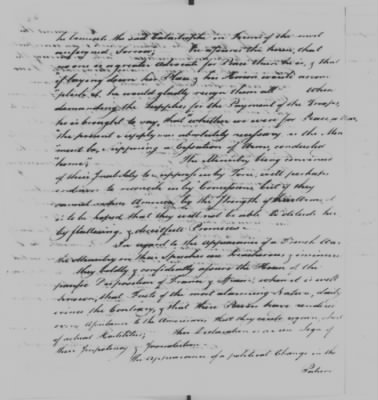 to lament the sad Catastrophe in Terms of the most
unfeigned Sorrow; he assures the House, that
no one is a greater Advocate for Peace than he is, & that
if laying down his Place & his Honor would accom
plish it, he would gladly resign them all When
demanding the Supplies for the Payment of the Troops,
he is brought to say, that "whether we were for Peace or War,
"the present Supply was absolutely necessary, as the Mo
"ment for supposing a Cessation of Arms, conducted
"home." The Ministry being convinced
of their Inability to oppress us by Force, will perhaps
endeavor to reconcile us by Concessions but if they
cannot America by the Strength of
it is to be hoped that they will not be able to delude her
by flattering & deceitful Promises.
In regard to the Appearance of a French War
the Ministry in their Speeches are &
they boldly & confidently assure the House of the
pacific Disposition of France & Spain; when it is well
known, that Facts of the most alarming Nature, daily
evince the Contrary, & that these Powers have rendered
Assistance to the Americans that they could expect, short
of actual Hostilities. This Declaration is a sure Sign of
their Impotency &
The Appearance of a political Change in the